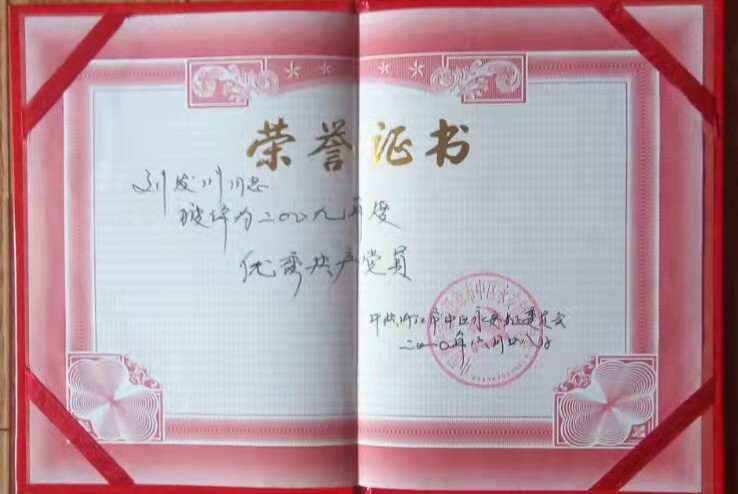 荣誉证书
刘发川同志
被评为二〇〇九年度
优秀共产党员
中共内江市市中区永安镇委员会
二〇一〇年六月廿八日